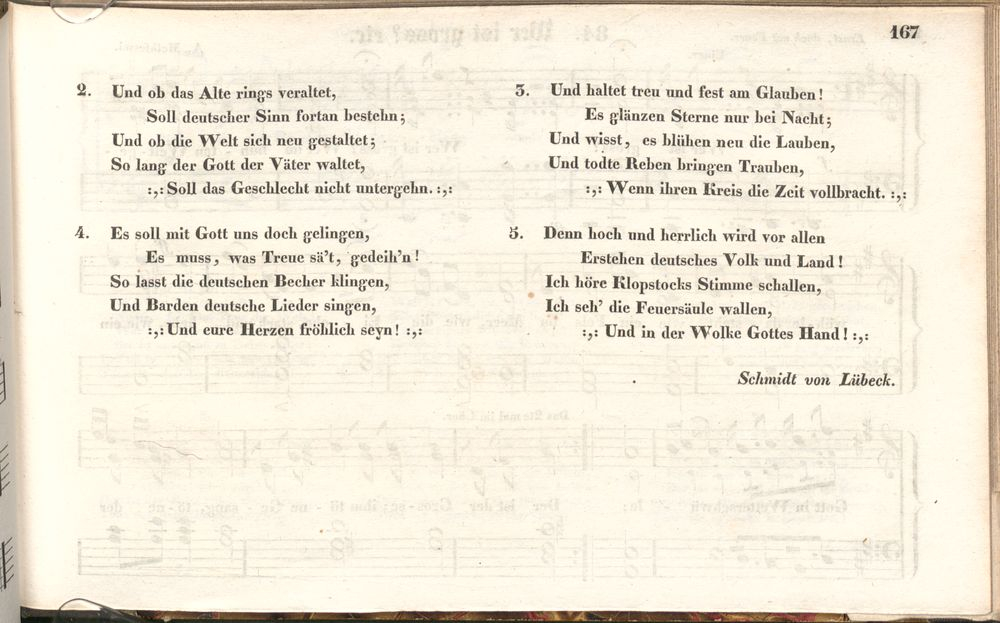 167
2. Und ob das Alte rings veraltet,
Soll deutscher Sinn fortan bestehn;
Und ob die Welt sich neu gestaltet;
So lang der Gott der Väter waltet,
:,: Soll das Geschlecht nicht untergehn. :,:
3. Und haltet treu und fest am Glauben!
Es glänzen Sterne nur bei Nacht;
Und wisst, es blühen neu die Lauben,
Und todte Reben bringen Trauben,
:,: Wenn ihren Kreis die Zeit vollbracht. :,:
4. Es soll mit Gott uns doch gelingen,
Es muss, was Treue sä't, gedeih'n!
So lasst die deutschen Becher klingen,
Und Barden deutsche Lieder singen,
:,: Und eure Herzen fröhlich seyn! :,:
5. Denn hoch und herrlich wird vor allen
Erstehen deutsches Volk und Land!
Ich höre Klopstocks Stimme schallen,
Ich seh' die Feuersäule wallen,
:,: Und in der Wolke Gottes Hand! :,:
Schmidt von Lübeck.